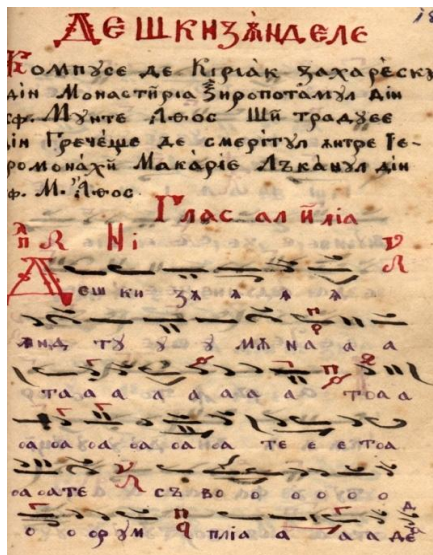 ДЕШКИЗѪНДЕЛЕ
Компусе де Кіріак Захареску
дін Монастиріа Ѯиропотамул дін
сф. Мунте Аѳос Ши традусе
дін Гречѣще де смерітул ѫнтре Іе-
ромонахи Макаріе Лъканул дін
сф. М. Аѳос.
Глас ал
Дешки зѫ ѫ ѫ ѫ
ѫнд ту у у мѫ на а а
та а а а а а а а тоа а
оа оа оа оа оа оа оа те е е тоа
оа оа те съ во о о о о о
о о о рум пліа а а а де